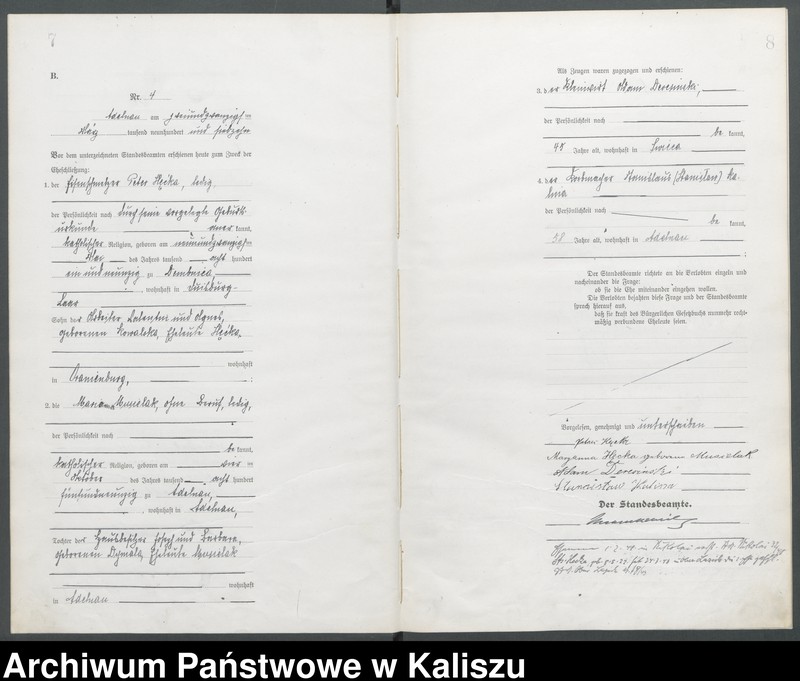 7
B.
Nr. 4
Adelnau am zweiundzwanzigsten
März tausend neunhundert und siebzehn
Vor dem unterzeichneten Standesbeamten erschienen heute zum Zweck der
Eheschließung:
1. der Peter Hęćka, ledig,
der Persönlichkeit nach durch seine vorgelegte Geburts-
urkunde kannt,
katholischer Religion, geboren am neunundzwanzigsten
Mai des Jahres tausend acht hundert
einundneunzig zu Dembnica,
, wohnhaft in Duisburg-
Laar
Sohn des Arbeiter Valentin und Agnes,
geborenen Kowalska, Eheleute Hęćka.
wohnhaft
in Oranienburg, ;
2. die Marianna Musielak, ohne Beruf, ledig,
der Persönlichkeit nach
be kannt,
katholischer Religion, geboren am vier-
Oktober des Jahres tausend acht hundert
fünfundneunzig zu Adelnau,
, wohnhaft in Adelnau,
Tochter der Joseph und Barbara,
geborenen Eheleute Musielak
wohnhaft
in Adelnau
8
Als Zeugen waren zugezogen und erschienen:
3. der Kleinwirt Adam Deresinski,
der Persönlichkeit nach
be kannt,
48 Jahre alt, wohnhaft in
4. der Korbmacher Stanislaus (Stanislav) Ka-
linia
der Persönlichkeit nach
be kannt,
38 Jahre alt, wohnhaft in Adelnau
;
Der Standesbeamte richtete an die Verlobten einzeln und
nacheinander die Frage:
ob sie die Ehe miteinander eingehen wollen.
Die Verlobten bejahten diese Frage und der Standesbeamte
sprach hierauf aus,
daß sie kraft des Bürgerlichen Gesetzbuchs nunmehr recht-
mäßig verbundene Eheleute seien.
Vorgelesen, genehmigt und unterschrieben
Peter Hęćka
Maryanna Hęćka geborene Musielak
Adam Deresinski
Der Standesbeamte.
Archiwum Państwowe w Kaliszu